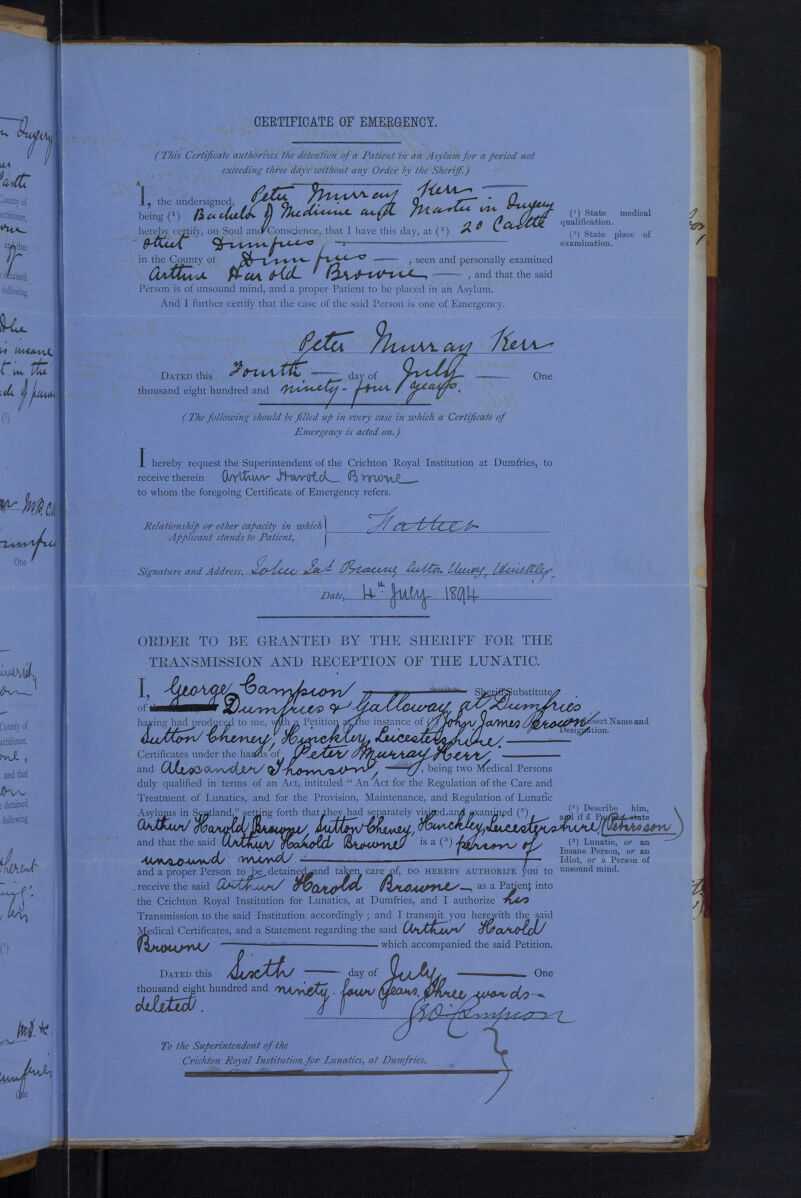 CERTIFICATE OF EMERGENCY.
(This Certificate authorizes the detention of a Patient in an Asylum for a period not
exceeding three days without any Order by the Sheriff.)
I, the undersigned, Peter Murray Kerr
being (¹) Bachelor of Medicine and Master in Surgery
hereby certify, on Soul and Conscience, that I have this day, at (²) 20 Castle
Street Dumfries
in the County of Dumfries, seen and personally examined
Arthur Harold Browne, and that the said
Person is of unsound mind, and a proper Patient to be placed in an Asylum.
And I further certify that the case of the said Person is one of Emergency.
(¹) State medical
qualification.
(²) State place of
examination.
Peter Murray Kerr
DATED this Fourth day of July One
thousand eight hundred and ninety-four years.
(The following should be filled up in every case in which a Certificate of
Emergency is acted on.)
I hereby request the Superintendent of the Crichton Royal Institution at Dumfries, to
receive therein Arthur Harold Browne
to whom the foregoing Certificate of Emergency refers.
Relationship or other capacity in which
Applicant stands to Patient,
Father
Signature and Address, John Jas Browne, Sutton Cheney, Hinckley.
Date, 4th July 1894
ORDER TO BE GRANTED BY THE SHERIFF FOR THE
TRANSMISSION AND RECEPTION OF THE LUNATIC.
I, George Campion Sheriff Substitute
of Dumfries & Galloway at Dumfries
having had produced to me, with a Petition at the instance of John James Brown
Sutton Cheney, Hinckley, Leicestershire.
Certificates under the hands of Peter Murray Kerr,
and Alexander Thomson, being two Medical Persons
duly qualified in terms of an Act, intituled "An Act for the Regulation of the Care and
Treatment of Lunatics, and for the Provision, Maintenance, and Regulation of Lunatic
Asylums in Scotland," setting forth that they had separately visited and examined (¹)
Arthur Harold Browne, Sutton Cheney, Hinckley, Leicestershire
and that the said Arthur Harold Browne is a (²) person of
unsound mind
and a proper Person to be detained and taken care of, DO HEREBY AUTHORIZE you to
receive the said Arthur Harold Browne as a Patient into
the Crichton Royal Institution for Lunatics, at Dumfries, and I authorize his
Transmission to the said Institution accordingly; and I transmit you herewith the said
Medical Certificates, and a Statement regarding the said Arthur Harold
Browne which accompanied the said Petition.
Insert Name and
Designation.
Describe him,
and if a Pauper state
Lunatic, or an
Insane Person, or an
Idiot, or a Person of
unsound mind.
DATED this Sixth day of July, One
thousand eight hundred and ninety-four years. Three words
deleted.
Campion
To the Superintendent of the
Crichton Royal Institution for Lunatics, at Dumfries.